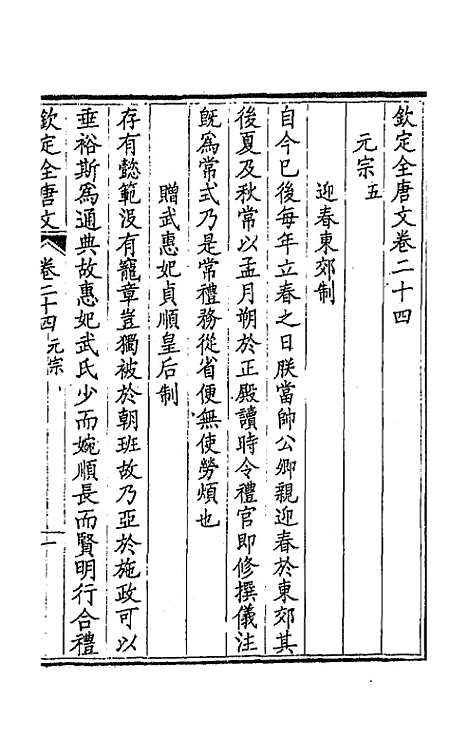 欽定全唐文卷二十四
元宗五
迎春東郊制
自今巳後每年立春之日朕當帥公卿親迎春於東郊其
後夏及秋常以孟月朔於正殿讀時令禮官即修撰儀注
旣爲常式乃是常禮務從省便無使勞煩也
贈武惠妃貞順皇后制
存有懿範沒有寵章豈獨被於朝班故乃亞於施政可以
垂裕斯爲通典故惠妃武氏少而婉順長而賢明行合禮
欽定全唐文 卷二十四 元宗 一